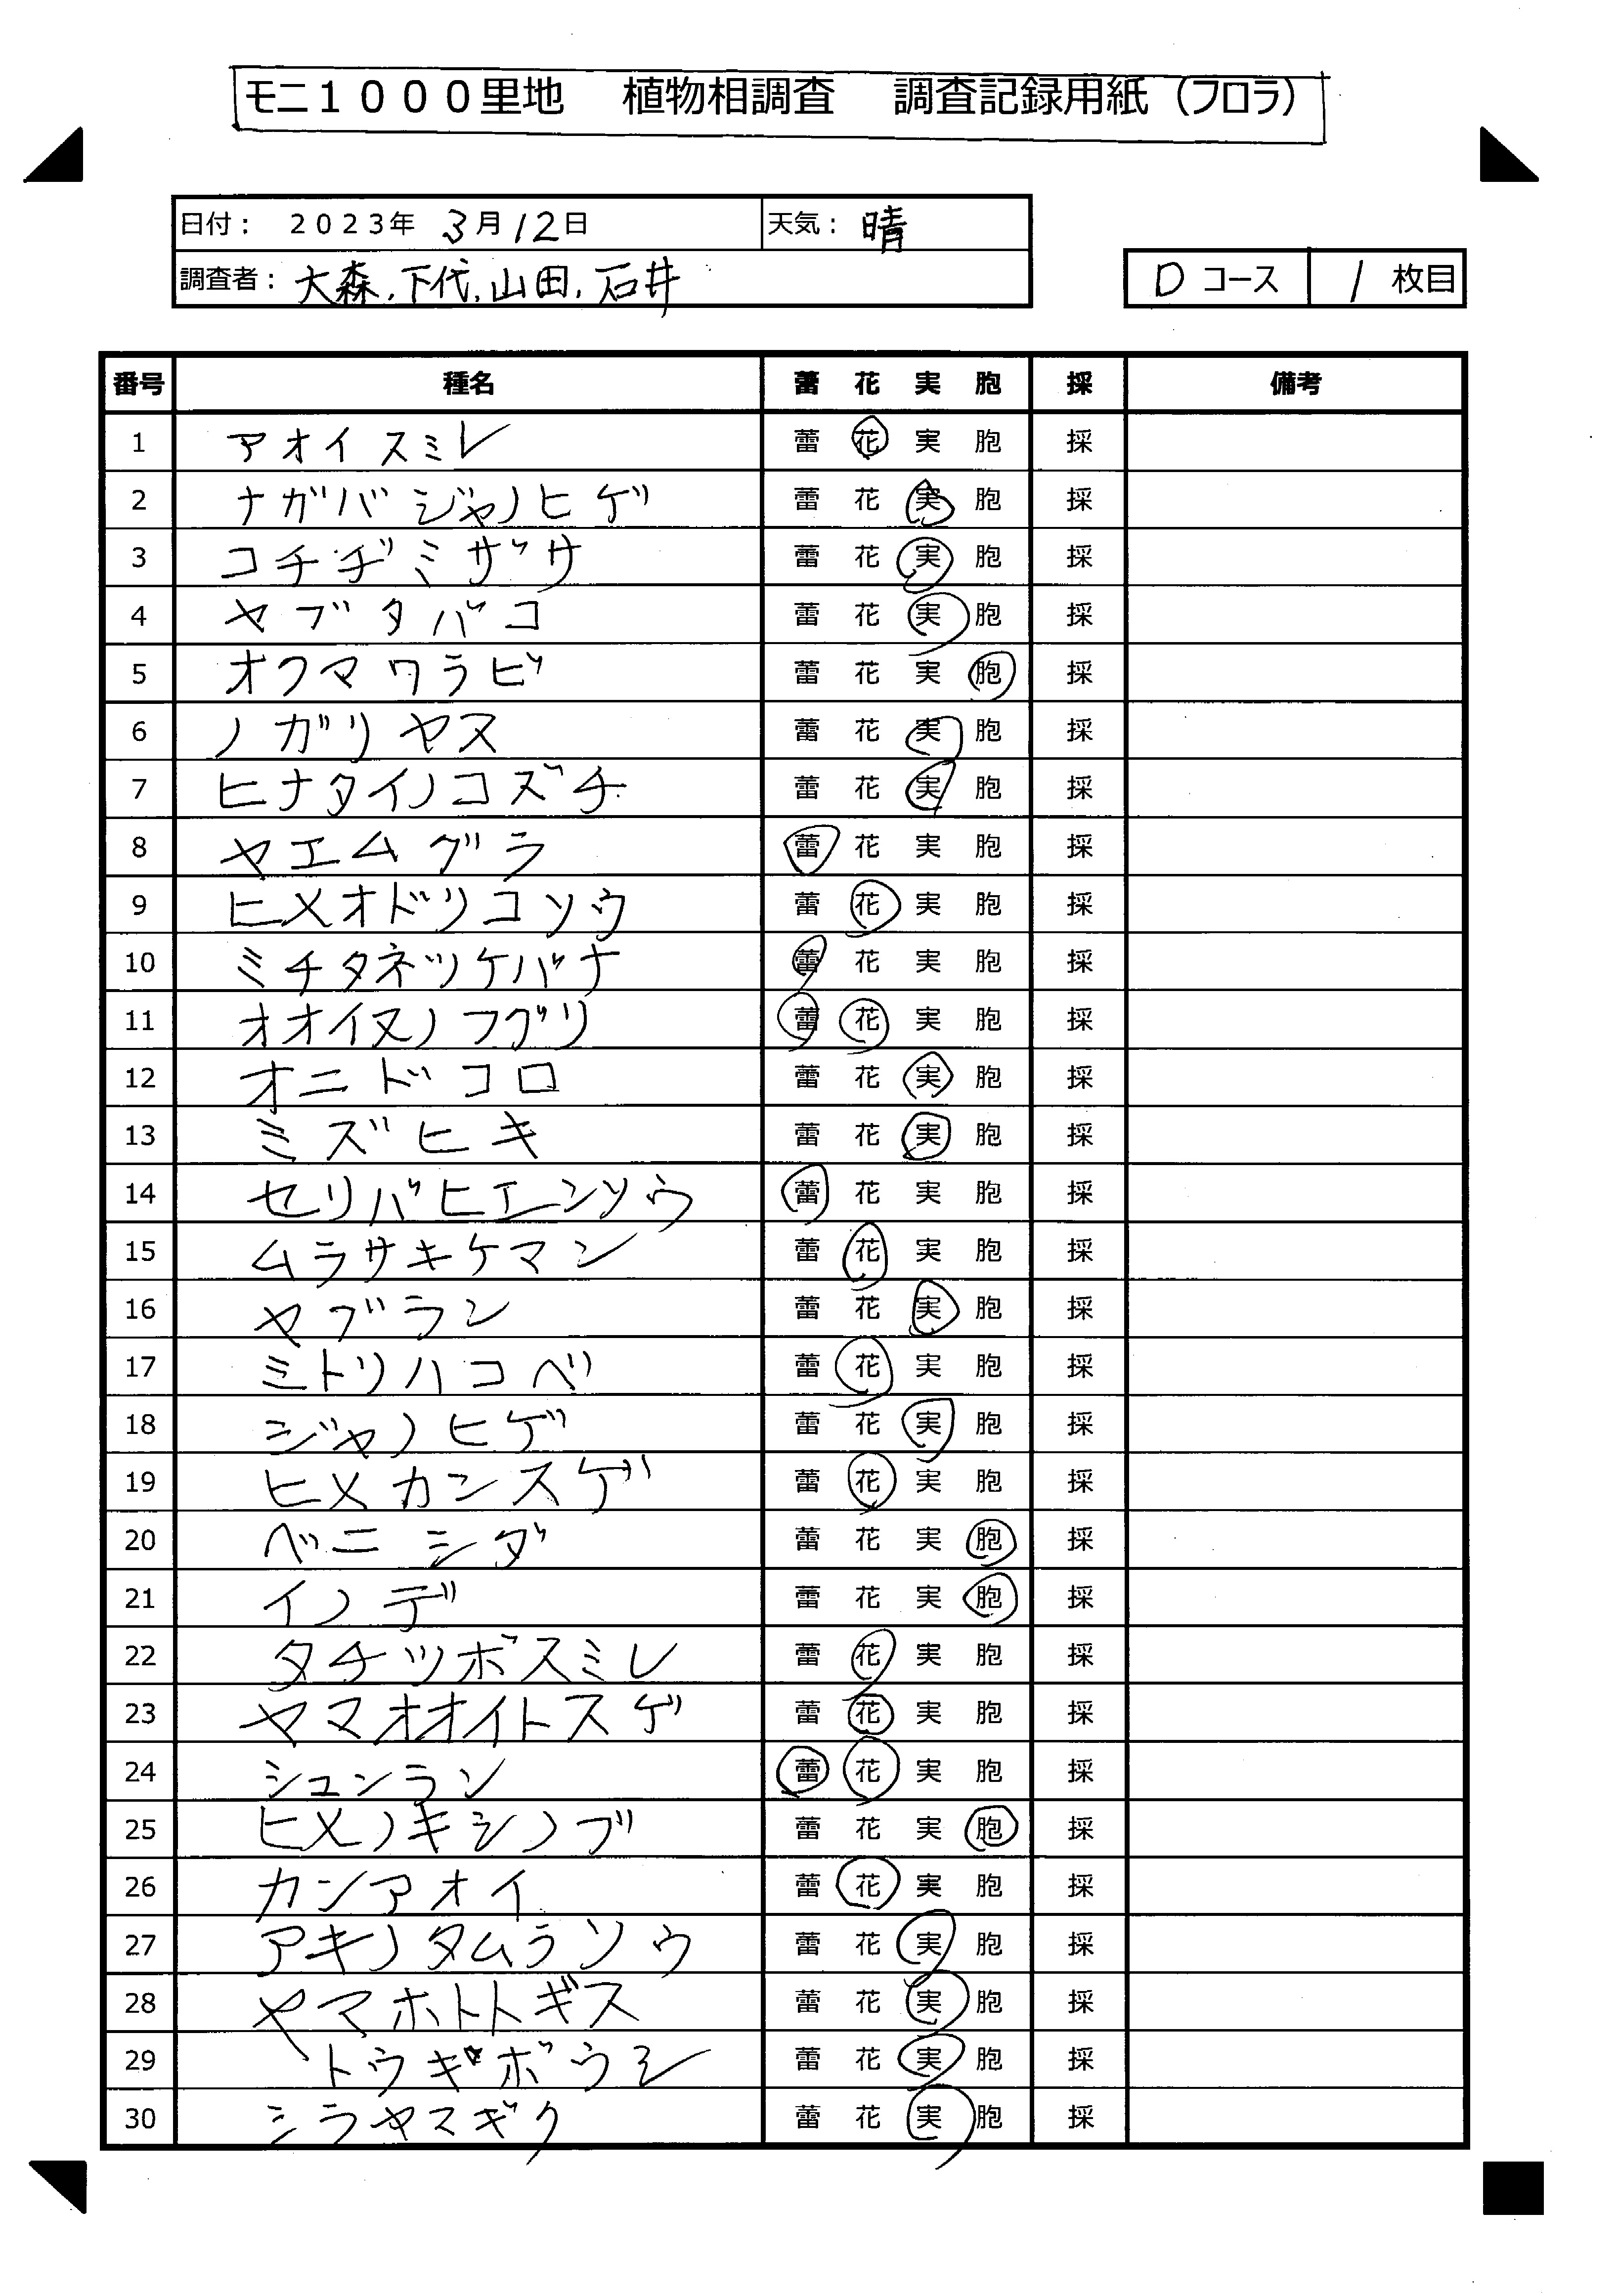 モニ１０００里地　植物相調査　調査記録用紙（フロラ）
日付： ２０２３年 3月12日 天気： 晴
調査者： 大森, 下代, 山田, 石井
D コース 1 枚目
番号 種名 蕾 花 実 胞 採 備考
1 アオイスミレ 蕾 花 実 胞 採
2 ナガバジャノヒゲ 蕾 花 実 胞 採
3 コチヂミザサ 蕾 花 実 胞 採
4 ヤブタバコ 蕾 花 実 胞 採
5 オクマワラビ 蕾 花 実 胞 採
6 ノガリヤス 蕾 花 実 胞 採
7 ヒナタイノコズチ 蕾 花 実 胞 採
8 ヤエムグラ 蕾 花 実 胞 採
9 ヒメオドリコソウ 蕾 花 実 胞 採
10 ミチタネツケバナ 蕾 花 実 胞 採
11 オオイヌノフグリ 蕾 花 実 胞 採
12 オニドコロ 蕾 花 実 胞 採
13 ミズヒキ 蕾 花 実 胞 採
14 セリバヒエンソウ 蕾 花 実 胞 採
15 ムラサキケマン 蕾 花 実 胞 採
16 ヤブラン 蕾 花 実 胞 採
17 ミトリハコベ 蕾 花 実 胞 採
18 ジャノヒゲ 蕾 花 実 胞 採
19 ヒメカンスゲ 蕾 花 実 胞 採
20 ベニシダ 蕾 花 実 胞 採
21 イノデ 蕾 花 実 胞 採
22 タチツボスミレ 蕾 花 実 胞 採
23 ヤマオオイトスゲ 蕾 花 実 胞 採
24 シュンラン 蕾 花 実 胞 採
25 ヒメノキシノブ 蕾 花 実 胞 採
26 カンアオイ 蕾 花 実 胞 採
27 アキノタムラソウ 蕾 花 実 胞 採
28 ヤマホトトギス 蕾 花 実 胞 採
29 トウギボウシ 蕾 花 実 胞 採
30 シラヤマギク 蕾 花 実 胞 採